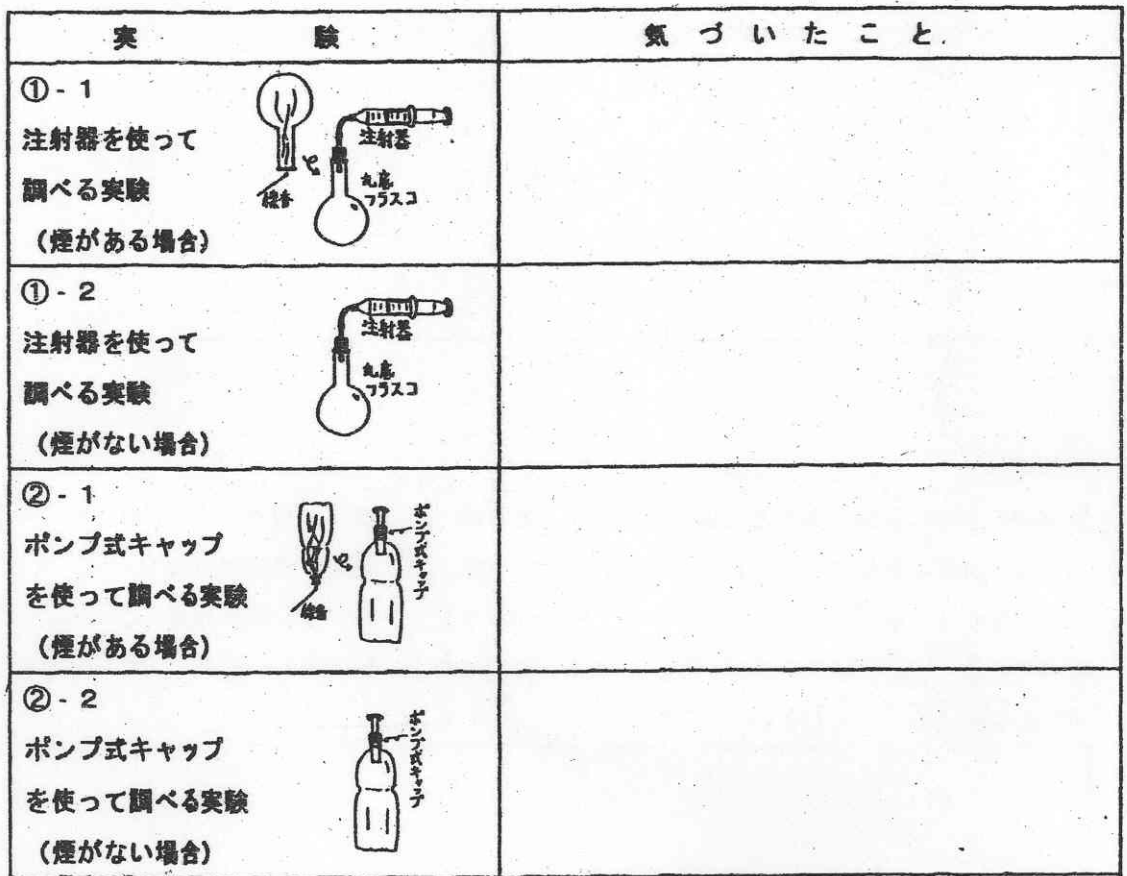 実験
気づいたこと
①-1
注射器を使って
調べる実験
(煙がある場合)
線香
注射器
丸底
フラスコ
①-2
注射器を使って
調べる実験
(煙がない場合)
注射器
丸底
フラスコ
②-1
ポンプ式キャップ
を使って調べる実験
(煙がある場合)
線香
ポンプ式キャップ
②-2
ポンプ式キャップ
を使って調べる実験
(煙がない場合)
ポンプ式キャップ